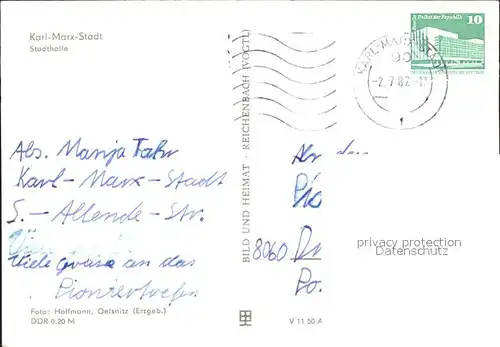 Karl-Marx-Stadt
Stadthalle
Palast der Republik 10
KARL-MARX-STADT
-2.7.82-
1
BILD UND HEIMAT · REICHENBACH (VOGTL)
Abs. Manja
Karl-Marx-Stadt
S.-Allende-Str.
Viele grüße an das
Pioniertreffen
An
Pio
8060 Dr
Po.
privacy protection
Datenschutz
Foto: Hoffmann, Oelsnitz (Erzgeb.)
DDR 0,20 M
V 11 50 A